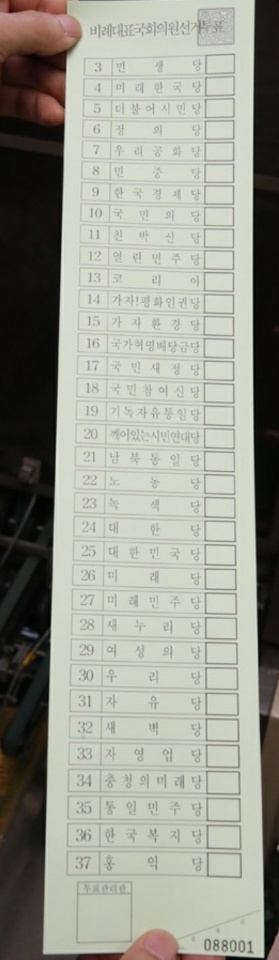 비례대표국회의원선거투표
3 민생당
4 미래한국당
5 더불어시민당
6 정의당
7 우리공화당
8 민중당
9 한국경제당
10 국민의당
11 친박신당
12 열린민주당
13 코리아
14 가자!평화인권당
15 가자환경당
16 국가혁명배당금당
17 국민새정당
18 국민참여신당
19 기독자유통일당
20 깨어있는시민연대당
21 남북통일당
22 노동당
23 녹색당
24 대한당
25 대한민국당
26 미래당
27 미래민주당
28 새누리당
29 여성의당
30 우리당
31 자유당
32 새벽당
33 자영업당
34 충청의미래당
35 통일민주당
36 한국복지당
37 홍익당
투표관리관
088001